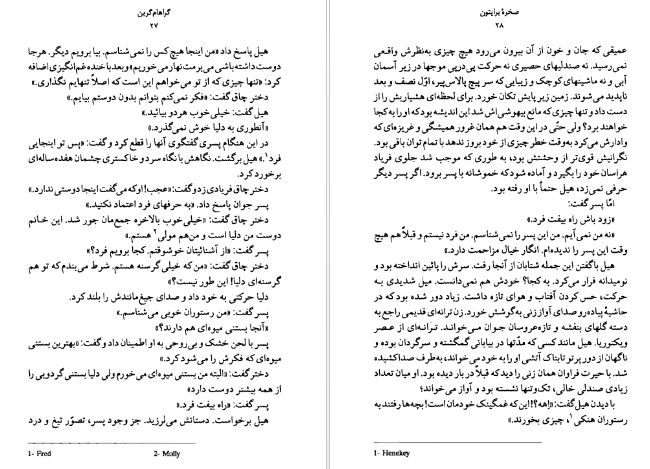 گراهام گرین
۲۷
هیل پاسخ داد «من اینجا هیچ کس را نمی‌شناسم. بیا برویم دیگر. هرجا
دوست داشته باشی می‌برمت نهار می‌خوریم» و بعد با خنده غم‌انگیزی اضافه
کرد: «تنها چیزی که از تو می‌خواهم این است که اصلاً تنهایم نگذاری.»
دختر چاق گفت: «فکر نمی‌کنم بتوانم بدون دوستم بیایم.»
هیل گفت: خیلی خوب هردو بیائید.»
«آنطوری به دلیا خوش نمی‌گذرد.»
در این هنگام پسری گفتگوی آنها را قطع کرد و گفت: «پس تو اینجایی
فرد۱.» هیل برگشت. نگاهش با نگاه سرد و خاکستری چشمان هفده‌ساله‌ای
برخورد کرد.
دختر چاق فریادی زد و گفت: «عجب! او که می‌گفت اینجا دوستی ندارد.»
پسر جوان پاسخ داد. «به حرفهای فرد اعتماد نکنید.»
دختر چاق گفت: «خیلی خوب بالاخره جمع‌مان جور شد. این خانم
دوست من دلیا است و من هم مولی۲ هستم.»
پسر گفت: «از آشنائیتان خوشوقتم. کجا برویم فرد؟»
دختر چاق گفت: «من که خیلی گرسنه هستم. شرط می‌بندم که تو هم
گرسنه‌ای دلیا! این طور نیست؟»
دلیا حرکتی به خود داد و صدای جیغ‌مانندش را بلند کرد.
پسر گفت: «من رستوران خوبی می‌شناسم.»
«آنجا بستنی میوه‌ای هم دارند؟»
پسر با لحن خشک و بی‌روحی به او اطمینان داد و گفت: «بهترین بستنی
میوه‌ای که فکرش را می‌شود کرد.»
دختر گفت: «البته من بستنی میوه‌ای می‌خورم ولی دلیا بستنی گردویی را
از همه بیشتر دوست دارد»
پسر گفت: «راه بیفت فرد.»
هیل برخواست. دستانش می‌لرزید. جز وجود پسر، تصوّر تیغ و درد
1- Fred 2- Molly
صخرهٔ برایتون
۲۸
عمیقی که جان و خون از آن بیرون می‌رود هیچ چیزی به‌نظرش واقعی
نمی‌رسید. نه صندلیهای حصیری نه حرکت پی‌درپی موجها در زیر آسمان
آبی و نه ماشینهای کوچک و زیبایی که سر پیچ پالاس‌پیر، اوّل نصف و بعد
ناپدید می‌شوند. زمین زیر پایش تکان خورد. برای لحظه‌ای هشیاریش را از
دست داد و تنها چیزی که مانع بیهوشی‌اش شد این اندیشه بود که او را به کجا
خواهند برد؟ ولی حتّی در این وقت هم همان غرور همیشگی و غریزه‌ای که
وادارش می‌کرد به‌وقت خطر چیزی از خود بروز ندهد با تمام توان باقی بود.
نگرانیش قوی‌تر از وحشتش بود، به طوری که موجب شد جلوی فریاد
هراسان خود را بگیرد و آماده شود که خموشانه با پسر برود. اگر پسر دیگر
حرفی نمی‌زد، هیل حتماً با او رفته بود.
امّا پسر گفت:
«زود باش راه بیفت فرد.»
«نه من نمی‌آیم. من این پسر را نمی‌شناسم. من فرد نیستم و قبلاً هم هیچ
وقت این پسر را ندیده‌ام. انگار خیال مزاحمت دارد.»
هیل با گفتن این جمله شتابان از آنجا رفت. سرش را پائین انداخته بود و
نومیدانه فرار می‌کرد. به کجا؟ خودش هم نمی‌دانست. میل شدیدی به
حرکت، حس کردن آفتاب و هوای تازه داشت. زیاد دور شده بود که در
حاشیهٔ پیاده‌رو صدای آواز زنی به گوشش خورد. زن ترانه‌ای قدیمی راجع به
دسته گلهای بنفشه و تازه‌عروسان جوان می‌خواند. ترانه‌ای از عصر
ویکتوریا. هیل مانند کسی که مدّتها در بیابانی گمگشته و سرگردان بوده و
ناگهان از دور پرتو تابناک آتشی او را به خود می‌خواند، به‌طرف صدا کشیده
شد. با حیرت فراوان همان زنی را دید که قبلاً در بار دیده بود. او میان تعداد
زیادی صندلی خالی، تک‌وتنها نشسته بود و آواز می‌خواند؛
با دیدن هیل گفت: «اهه؟!! این که غمگینک خودمان است! بچه‌ها رفتند به
رستوران هنکی۱، چیزی بخورند.»
1- Henekey